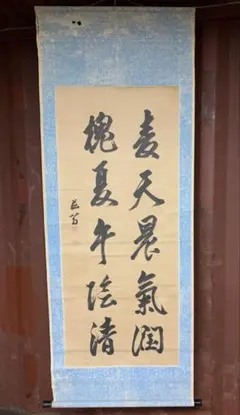 麦天晨氣潤
槐夏午陰清